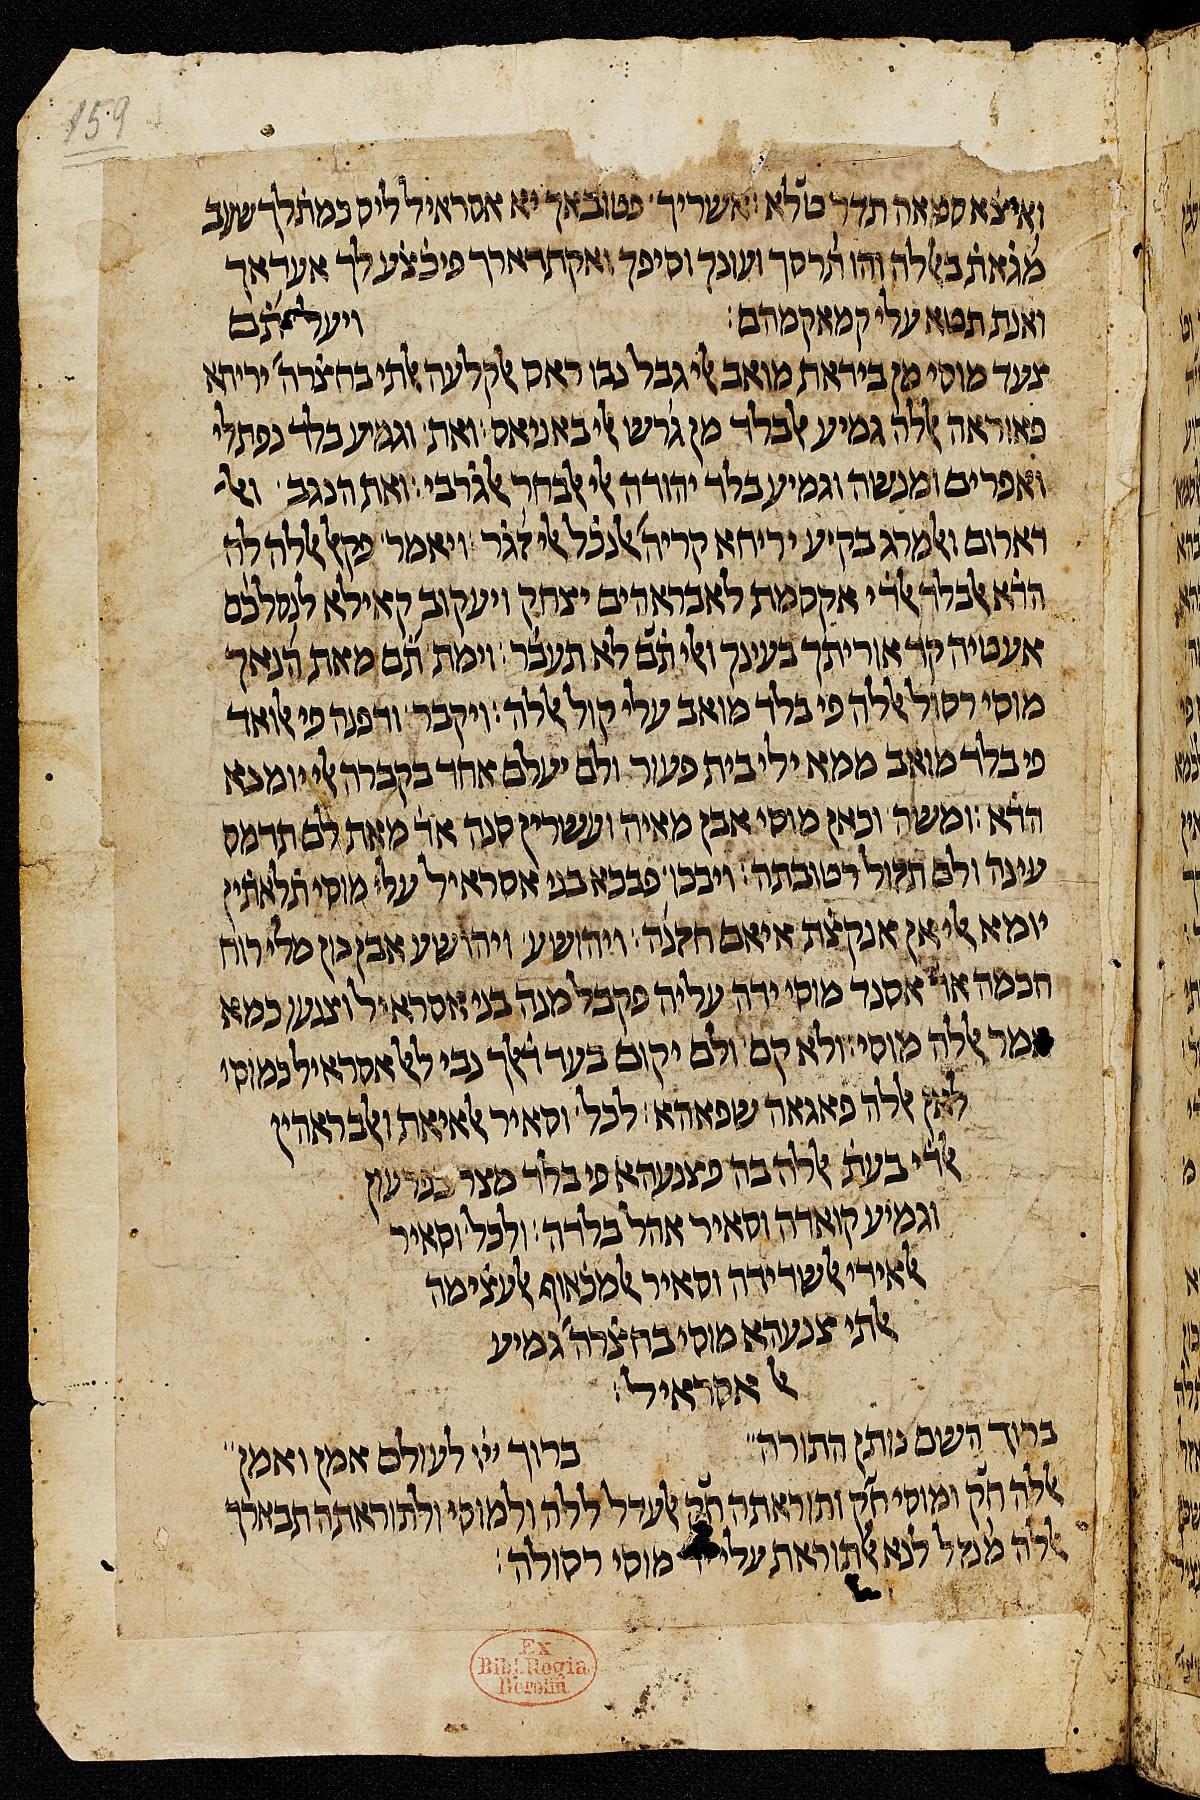 159
ואיצׄא סמאה תדר טלא : אשריך פטובאך יא אסראיל ליס כמתׄלך שעב
מגׄאתׄ באללה והו תׄרסך ועונך וסיפך ואקתדארך פיכׄצׄע לך אעדאך
ואנת תטא עלי קמאקמהם : ויעל תׄם
צעד מוסי מן ביראת מואב אלי גבל נבו ראס אלקלעה אלתי בחצׄרהׄ יריחא
פאוראה אללה גמיע אלבלד מן גרש אלי באניאס : ואת וגמיע בלד נפתלי
ואפרים ומנשה וגמיע בלד יהודה אלי אלבחר אלגרבי : ואת הנגב ואל
דארום ואלמרג בקיע יריחא קריהׄ אלנכׄל אלי זגׄר : ויאמר פקאל אללה לה
הדׄא אלבלד אלדׄי אקסמת לאבראהים יצחק ויעקוב קאילא לנסלכם
אעטיה קד אוריתך בעינך ואלי תׄם לא תעבר : וימת תׄם מאת הנאך
מוסי רסול אללה פי בלד מואב עלי קול אללה : ויקבר ודפנה פי אלואד
פי בלד מואב ממא ילי בית פעור ולם יעלם אחד בקברה אלי יומנא
הדׄא : ומשה וכאן מוסי אבן מאיה ועשרין סנה אדׄ מאת לם תדמס
עינה ולם תזול רטובתה : ויבכו פבכא בני אסראיל עלי מוסי תׄלאתׄין
יומא אלי אן אנקצׄת איאם חזנה : ויהושע ויהושע אבן נון מלי רוח
חכמה אדׄ אסנד מוסי ידה עליה פקבל מנה בני אסראיל וצנעו כמא
אמר אללה מוסי : ולא קם ולם יקום בעד דׄאלך נבי לאל אסראיל כמוסי
לאן אללה פאגאה שפאהא : לכל וסאיר אלאיאת ואלבראהין
אלדׄי בעתׄ אללה בה פצנעהא פי בלד מצר בפרעון
וגמיע קואדה וסאיר אהל בלדה : ולכל וסאיר
אלאידי אלשדידה וסאיר אלמכׄאוף אלעצׄימה
אלתי צנעהא מוסי בחצׄרהׄ גמיע
אל אסראיל :
ברוך השם נותן התורה ברוך ייי לעולם אמן ואמן
אללה חק ומוסי חק ותוראתה חק אלעדל ללה ולמוסי ולתוראתה תבארך
אללה מנזל לנא אלתוראת עלי מוסי רסולה :
Ex
Bibl. Regia
Berolin